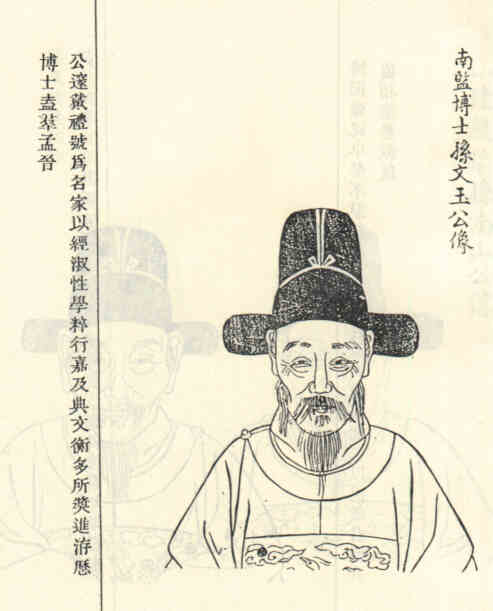 南監博士孫文玉公像
公邃戴禮號爲名家以經淑性學粹行嘉及典文衡多所奬進洊歷
博士壺萃孟晉